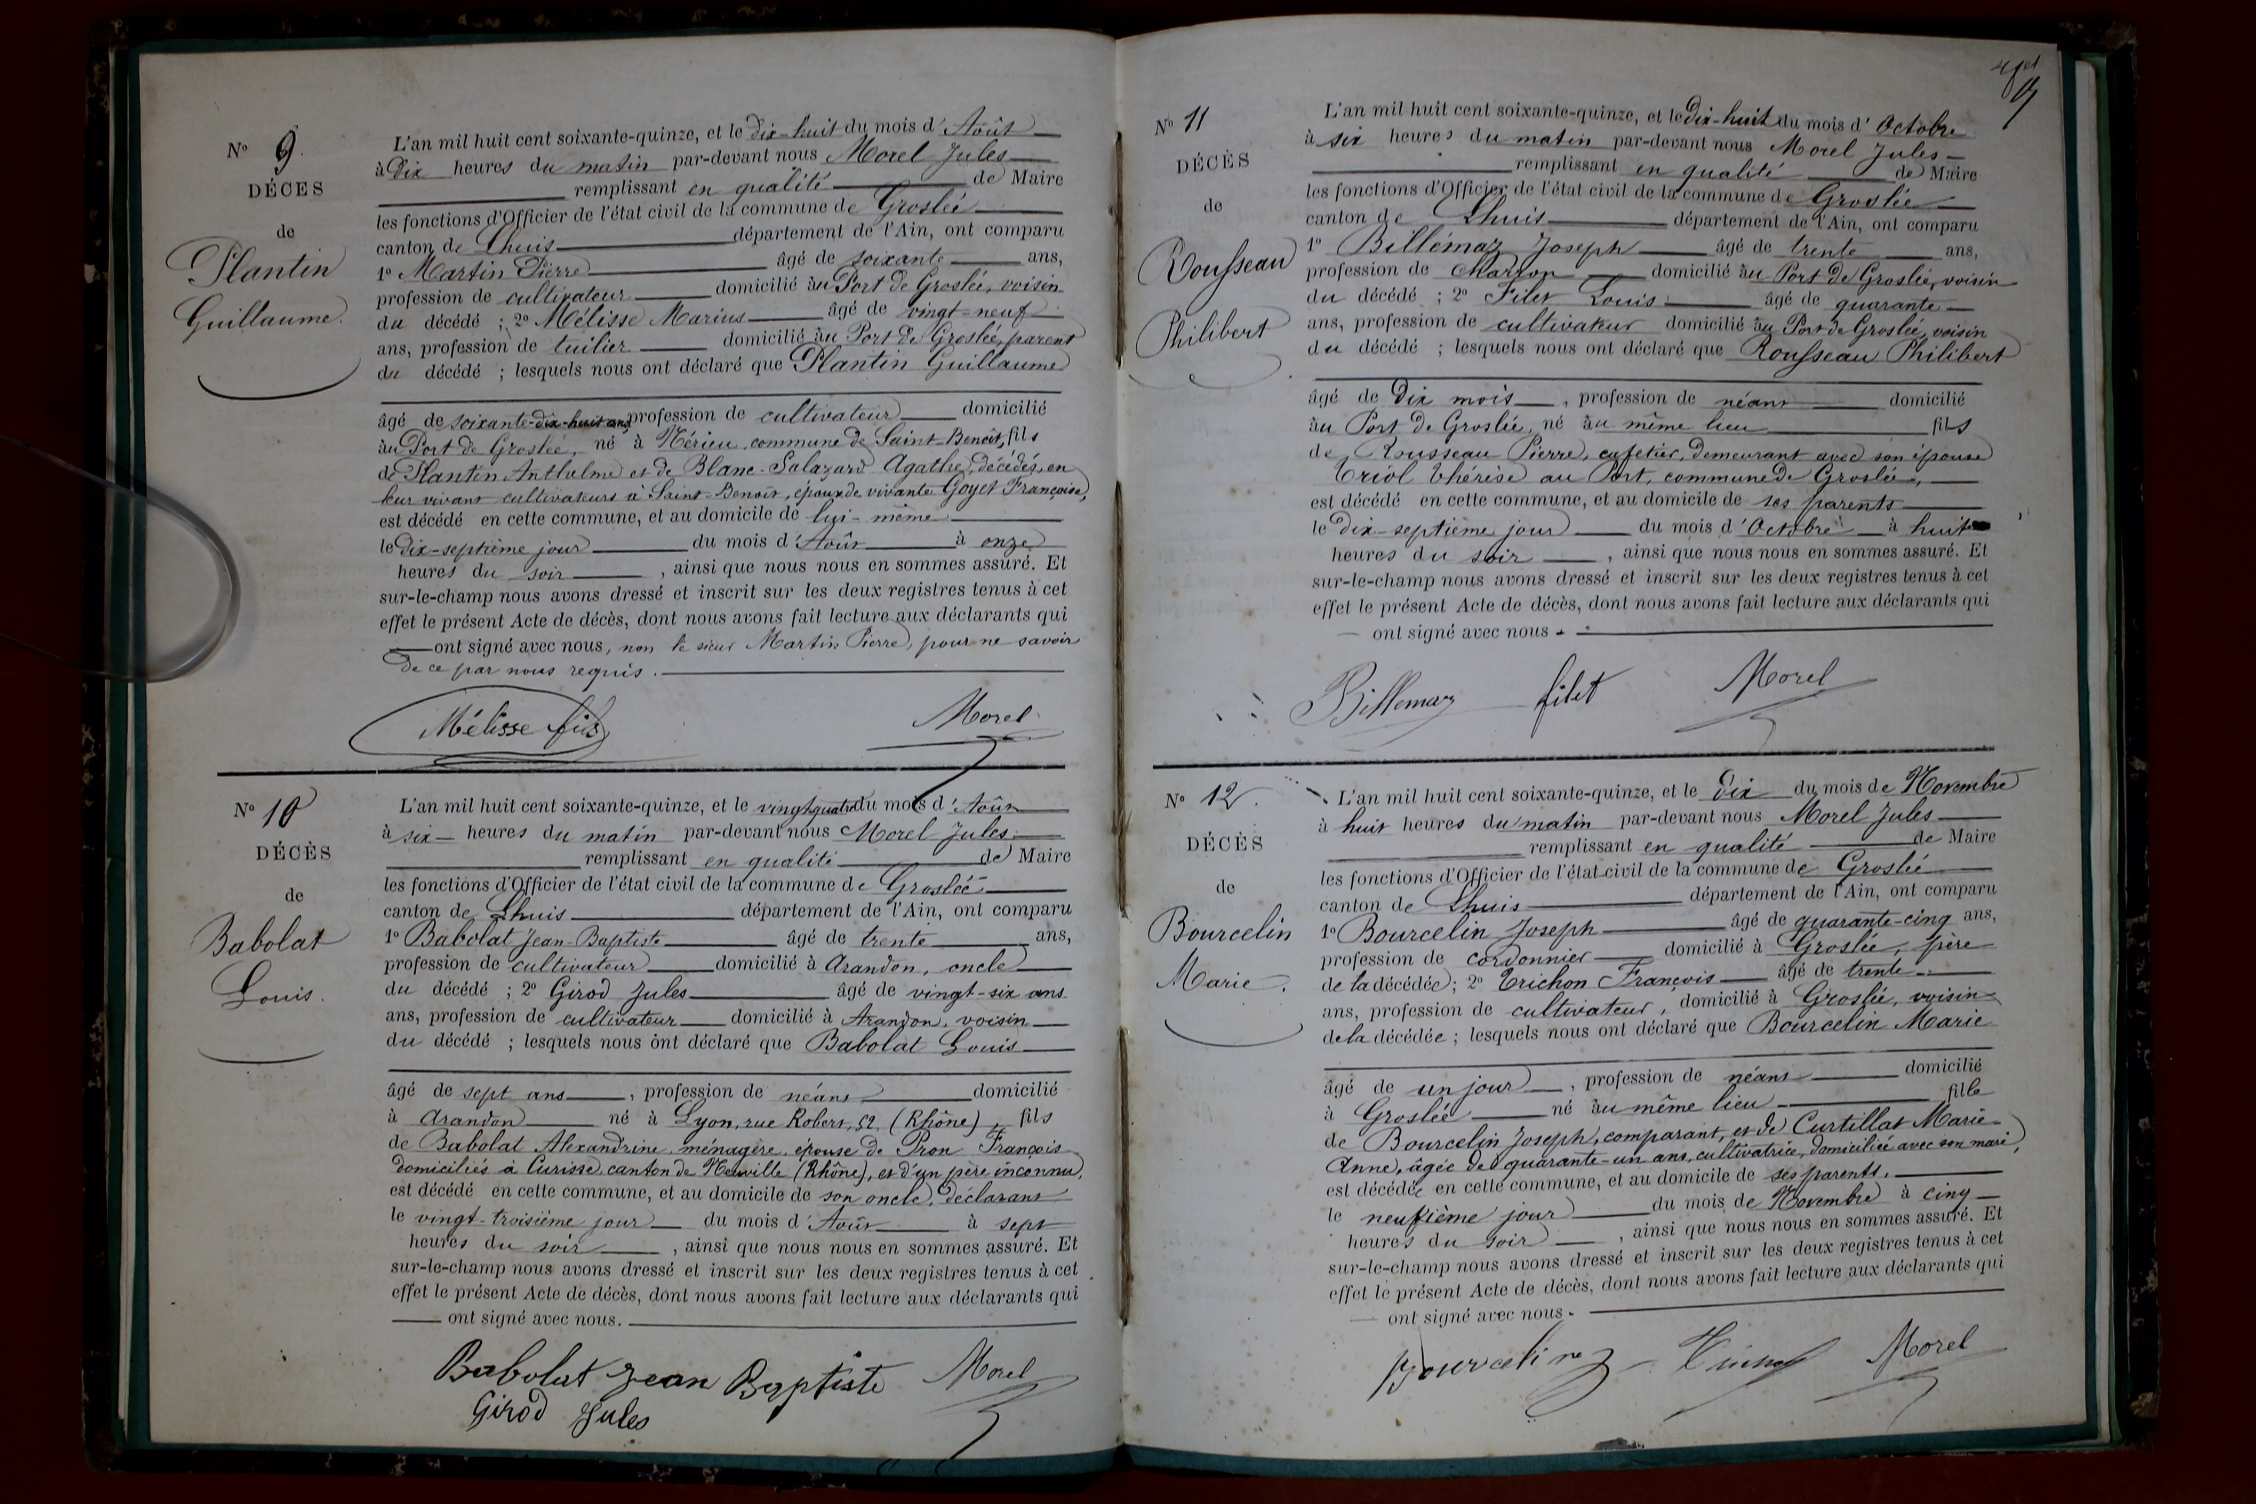 N° 9.
DÉCES
de
Plantin
Guillaume.
L'an mil huit cent soixante-quinze, et le dix-huit du mois d'Août
à Dix heures du matin par-devant nous Morel Jules
remplissant en qualité de Maire
les fonctions d'Officier de l'état civil de la commune de Groslée
canton de Lhuis département de l'Ain, ont comparu
1° Martin Pierre âgé de soixante ans,
profession de cultivateur domicilié au Port de Groslée, voisin
du décédé ; 2° Mélisse Marius âgé de vingt-neuf
ans, profession de tuilier domicilié au Port de Groslée, parent
du décédé ; lesquels nous ont déclaré que Plantin Guillaume
âgé de soixante-dix-huit ans, profession de cultivateur domicilié
au Port de Groslée, né à Mérieu commune de Saint-Benoît, fils
de Plantin Anthelme et de Blanc-Salazard Agathe, décédés, en
leur vivant cultivateurs à Saint-Benoît, époux de vivante Goyet Françoise,
est décédé en cette commune, et au domicile de lui-même
le dix-septième jour du mois d'Août à onze
heures du soir, ainsi que nous nous en sommes assuré. Et
sur-le-champ nous avons dressé et inscrit sur les deux registres tenus à cet
effet le présent Acte de décès, dont nous avons fait lecture aux déclarants qui
ont signé avec nous, non le sieur Martin Pierre, pour ne savoir
de ce par nous requis.
Mélisse fils Morel
N° 10
DÉCÈS
de
Babolat
Louis.
L'an mil huit cent soixante-quinze, et le vingt quatre du mois d'Août
à six heures du matin par-devant nous Morel Jules
remplissant en qualité de Maire
les fonctions d'Officier de l'état civil de la commune de Groslée
canton de Lhuis département de l'Ain, ont comparu
1° Babolat Jean-Baptiste âgé de trente ans,
profession de cultivateur domicilié à Arandon, oncle
du décédé ; 2° Girod Jules âgé de vingt-six ans
ans, profession de cultivateur domicilié à Arandon, voisin
du décédé ; lesquels nous ont déclaré que Babolat Louis
âgé de sept ans, profession de néant domicilié
à Arandon né à Lyon, rue Robert, 52 (Rhône), fils
de Babolat Alexandrine, ménagère, épouse de Pron François
domiciliés à Curisse, canton de Neuville (Rhône), et d'un père inconnu,
est décédé en cette commune, et au domicile de son oncle, déclarant
le vingt-troisième jour du mois d'Août à sept
heures du soir, ainsi que nous nous en sommes assuré. Et
sur-le-champ nous avons dressé et inscrit sur les deux registres tenus à cet
effet le présent Acte de décès, dont nous avons fait lecture aux déclarants qui
ont signé avec nous.
Babolat Jean Baptiste Morel
Girod Jules
N° 11
DÉCÈS
de
Rousseau
Philibert
L'an mil huit cent soixante-quinze, et le Dix-huit du mois d'Octobre
à six heures du matin par-devant nous Morel Jules
remplissant en qualité de Maire
les fonctions d'Officier de l'état civil de la commune de Groslée
canton de Lhuis département de l'Ain, ont comparu
1° Billémaz Joseph âgé de trente ans,
profession de charron domicilié au Port de Groslée, voisin
du décédé ; 2° Filet Louis âgé de quarante
ans, profession de cultivateur domicilié au Port de Groslée, voisin
du décédé ; lesquels nous ont déclaré que Rousseau Philibert
âgé de Dix mois, profession de néant domicilié
au Port de Groslée, né au même lieu fils
de Rousseau Pierre, cafetier, demeurant avec son épouse
Criol Thérèse au Port, commune de Groslée,
est décédé en cette commune, et au domicile de ses parents
le dix-septième jour du mois d'Octobre à huit
heures du soir, ainsi que nous nous en sommes assuré. Et
sur-le-champ nous avons dressé et inscrit sur les deux registres tenus à cet
effet le présent Acte de décès, dont nous avons fait lecture aux déclarants qui
ont signé avec nous.
Billemaz filet Morel
N° 12.
DÉCÈS
de
Bourcelin
Marie.
L'an mil huit cent soixante-quinze, et le Dix du mois de Novembre
à huit heures du matin par-devant nous Morel Jules
remplissant en qualité de Maire
les fonctions d'Officier de l'état civil de la commune de Groslée
canton de Lhuis département de l'Ain, ont comparu
1° Bourcelin Joseph âgé de quarante-cinq ans,
profession de cordonnier domicilié à Groslée, père
de la décédée ; 2° Trichon François âgé de trente
ans, profession de cultivateur, domicilié à Groslée, voisin
de la décédée ; lesquels nous ont déclaré que Bourcelin Marie
âgé de un jour, profession de néant domicilié
à Groslée né au même lieu fille
de Bourcelin Joseph, comparant, et de Curtillat Marie-
Anne, âgée de quarante-un ans, cultivatrice, domiciliée avec son mari,
est décédée en cette commune, et au domicile de ses parents,
le neufième jour du mois de Novembre à cinq
heures du soir, ainsi que nous nous en sommes assuré. Et
sur-le-champ nous avons dressé et inscrit sur les deux registres tenus à cet
effet le présent Acte de décès, dont nous avons fait lecture aux déclarants qui
ont signé avec nous.
Bourcelin Morel